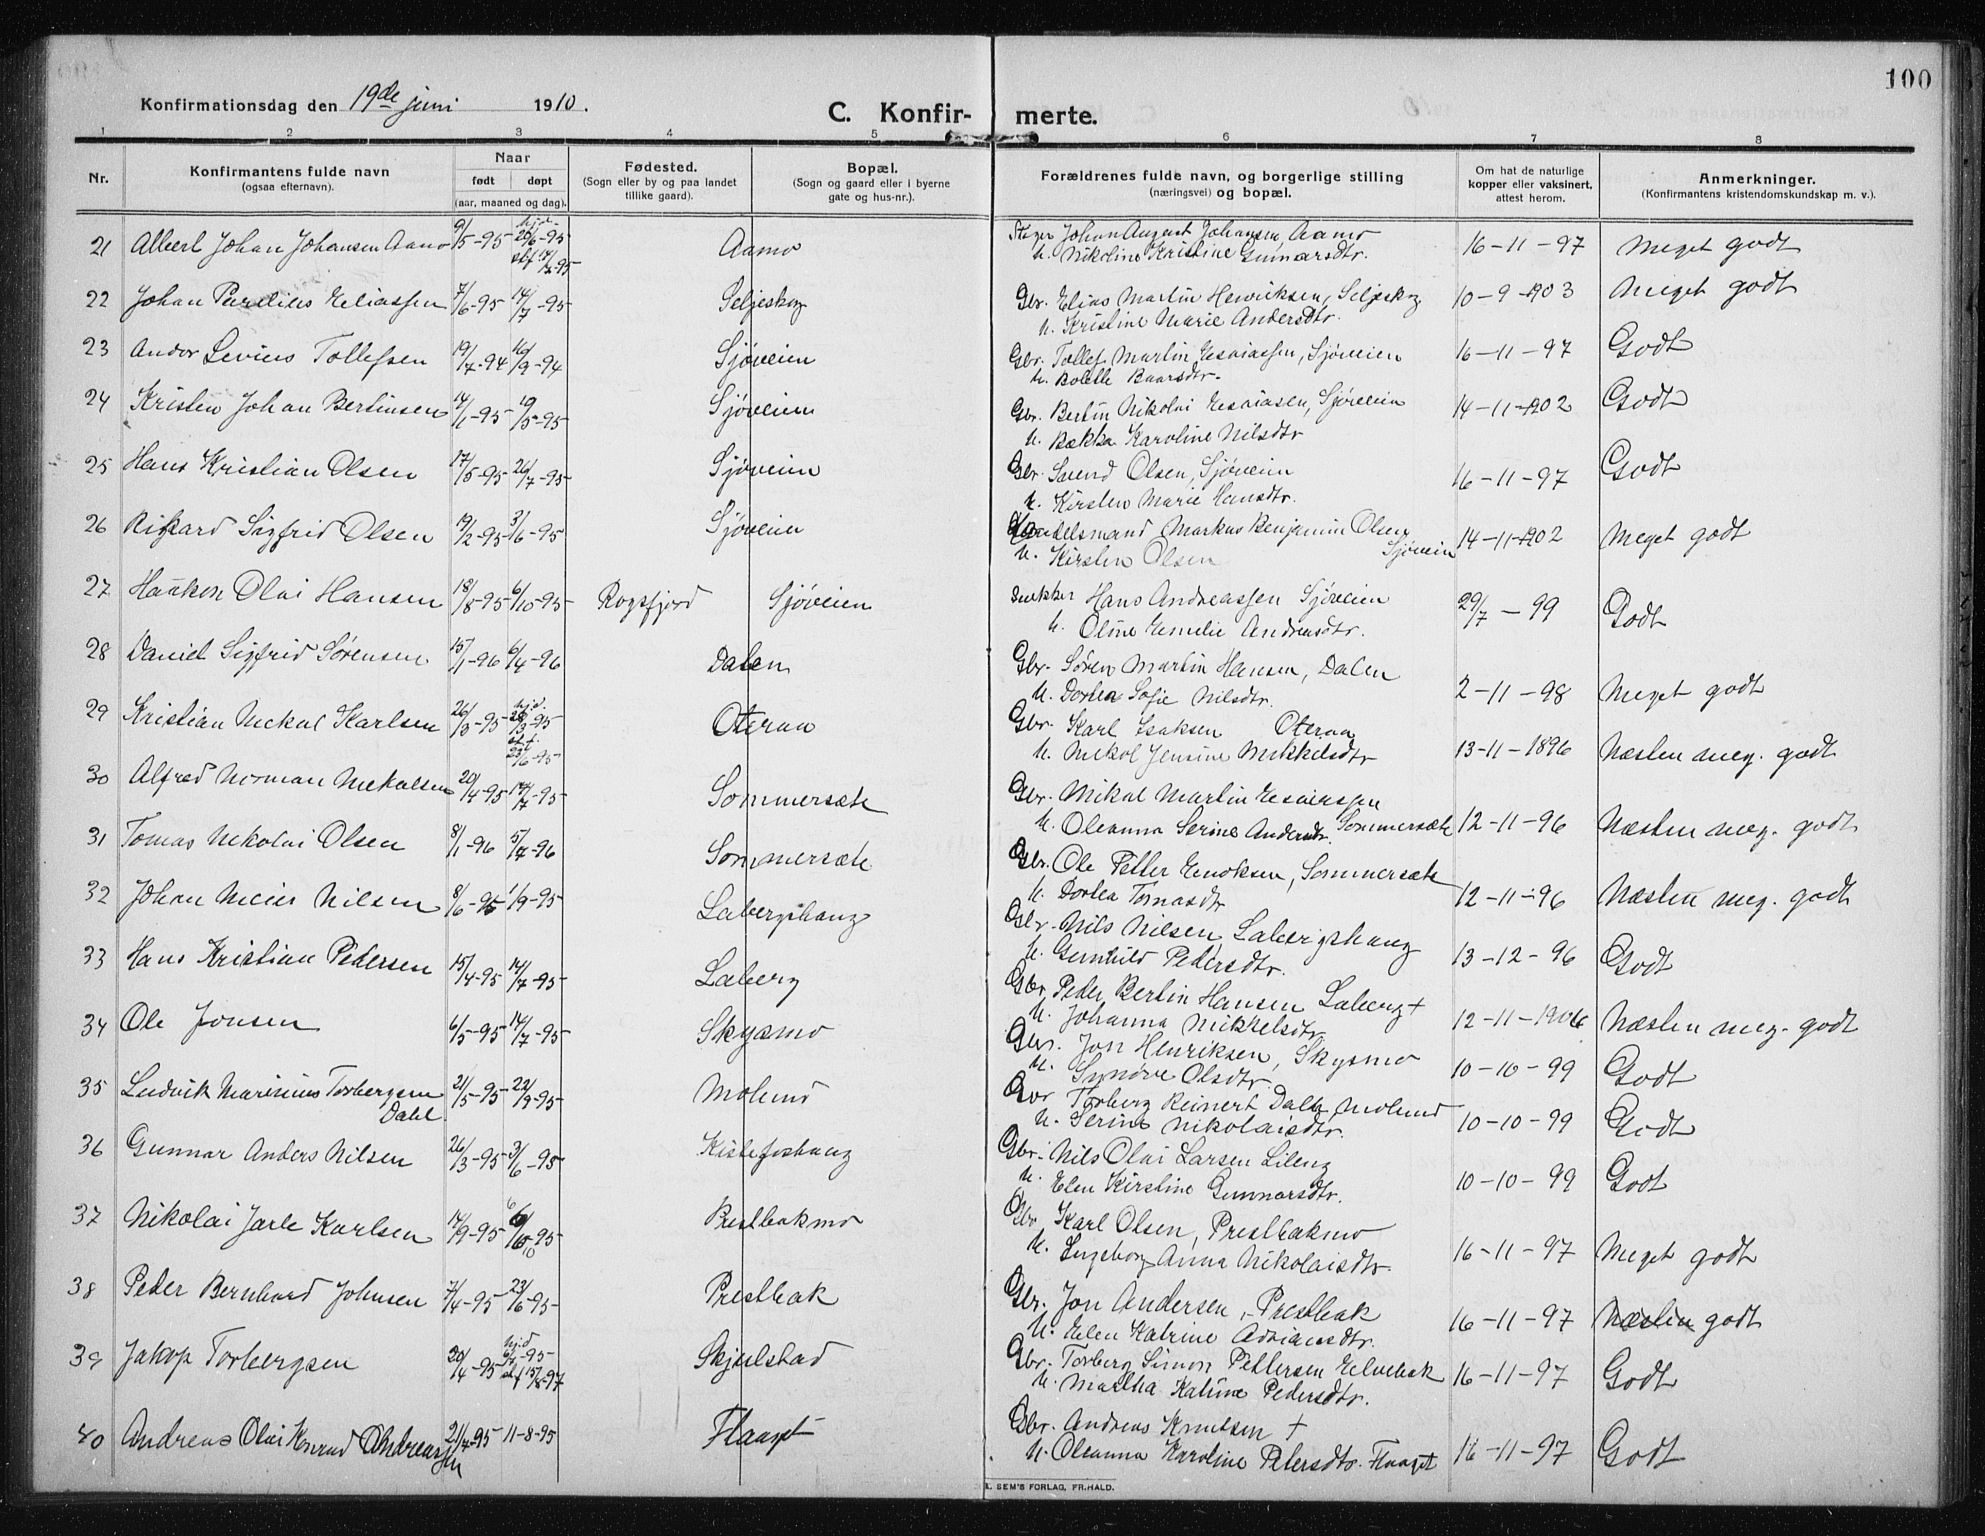 100
Konfirmationsdag den 19de juni 1910.
C. Konfir- merte.
1 2 3 4 5 6 7 8
Nr.
Konfirmantens fulde navn
(ogsaa efternavn).
Naar
født døpt
(aar, maaned og dag).
Fødested.
(Sogn eller by og paa landet
tillike gaard).
Bopæl.
(Sogn og gaard eller i byerne
gate og hus-nr.).
Forældrenes fulde navn, og borgerlige stilling
(næringsvei) og bopæl.
Om hat de naturlige
kopper eller vaksinert,
attest herom.
Anmerkninger.
(Konfirmantens kristendomskundskap m. v.).
21 Albert Johan Johansen Aamo 9/5-95 hjd. 20/6-95 Aamo Johan August Johansen, Aamo 16-11-97 Meget godt
stf. 14/7-95 u. Nikoline Kristine Gunnarsdtr.
22 Johan Parelius Eliassen 7/6-95 14/7-95 Seljeskog Gbr. Elias Martin Henriksen, Seljeskog 10-9-1903 Meget godt
u. Kristine Marie Andersdtr.
23 Andor Levius Tollefsen 19/7-94 16/9-94 Sjøveien Gbr. Tollef Martin Esaiassen, Sjøveien 16-11-97 Godt
u. Bolette Baarsdtr.
24 Kristen Johan Bertinsen 14/1-95 19/5-95 Sjøveien Gbr. Bertin Nikolai Esaiasen, Sjøveien 14-11-1902 Godt
u. Bækka Karoline Nilsdtr
25 Hans Kristian Olsen 17/5-95 26/7-95 Sjøveien Gbr. Svend Olsen, Sjøveien 16-11-97 Godt
u. Kirsten Marie Hansdtr.
26 Rikard Sigfrid Olsen 19/2-95 3/6-95 Sjøveien Handelsmand Markus Benjamin Olsen 14-11-1902 Meget godt
u. Kirsten Olsen Sjøveien
27 Haakon Olai Hansen 18/8-95 6/10-95 Rogsfjord Sjøveien Snekker Hans Andreassen Sjøveien 29/7-99 Godt
u. Oline Emelie Andreasdtr.
28 Daniel Sigfrid Sørensen 15/1-96 6/4-96 Dalen Gbr. Søren Martin Hansen, Dalen 2-11-98 Meget godt
u. Dortea Sofie Nilsdtr.
29 Kristian Mekal Karlsen 26/3-95 hjd. 28/3-95 Oteraa Gbr. Karl Isaksen Oteraa 13-11-1896 Næsten meg. godt
stf. 23/6-95 u. Mekol Jensine Mikkelsdtr
30 Alfred Norman Mekalsen 20/4-95 14/7-95 Sommersæte Gbr. Mikal Martin Esaiassen
u. Oleanna Serine Andersdtr. Sommersæte 12-11-96 Næsten meg. godt
31 Tomas Nekolai Olsen 8/1-96 5/4-96 Sommersæte Gbr. Ole Petter Enoksen, Sommersæte
u. Dortea Tomasdtr 12-11-96 Næsten meg. godt
32 Johan Meier Nilsen 8/6-95 1/9-95 Labergshaug Gbr. Nils Nilsen Labergshaug
u. Gunhild Pedersdtr. 13-12-96 Godt
33 Hans Kristian Pedersen 15/4-95 14/7-95 Laberg Gbr Peder Bertin Hansen Laberg +
u. Johanna Mikkelsdtr 12-11-1906 Næsten meg. godt
34 Ole Jonsen 6/5-95 14/7-95 Skysmo Gbr. Jon Henriksen, Skysmo
u. Synøve Olsdtr. 10-10-99 Godt
35 Ludvik Marinius Torbergsen 21/5-95 22/9-95 Molund Gbr Torberg Reinert Dahl, Molund
Dahl. u. Serine Nikolaisdtr. 10-10-99 Godt
36 Gunnar Anders Nilsen 26/3-95 3/6-95 Kistefoshaug Gbr. Nils Olai Larsen Lileng
u. Elen Kirstine Gunnarsdtr. 10-10-99 Godt
37 Nikolai Jarle Karlsen 14/9-95 6/10-95 Prestbakmo Gbr Karl Olsen, Prestbakmo
u. Ingeborg Anna Nikolaisdtr. 16-11-97 Meget godt
38 Peder Bernhard Johnsen 7/4-95 23/6-95 Prestbak Gbr. Jon Andersen, Prestbak
u. Elen Katrine Adriansdtr. 16-11-97 Næsten godt
39 Jakop Torbergsen 20/4-95 hjd -95 Skjelstad Gbr. Torberg Simon Pettersen Elvebak 16-11-97 Godt
stf 15/8-97 u. Martha Katrine Pedersdtr.
40 Andreas Olai Konrad Andreassen 21/4-95 11-8-95 Flaaget Gbr. Andreas Knutsen +
u. Oleanna Karoline Petersdtr. Flaaget 16-11-97 Godt
SEM'S FORLAG, FR.HALD.